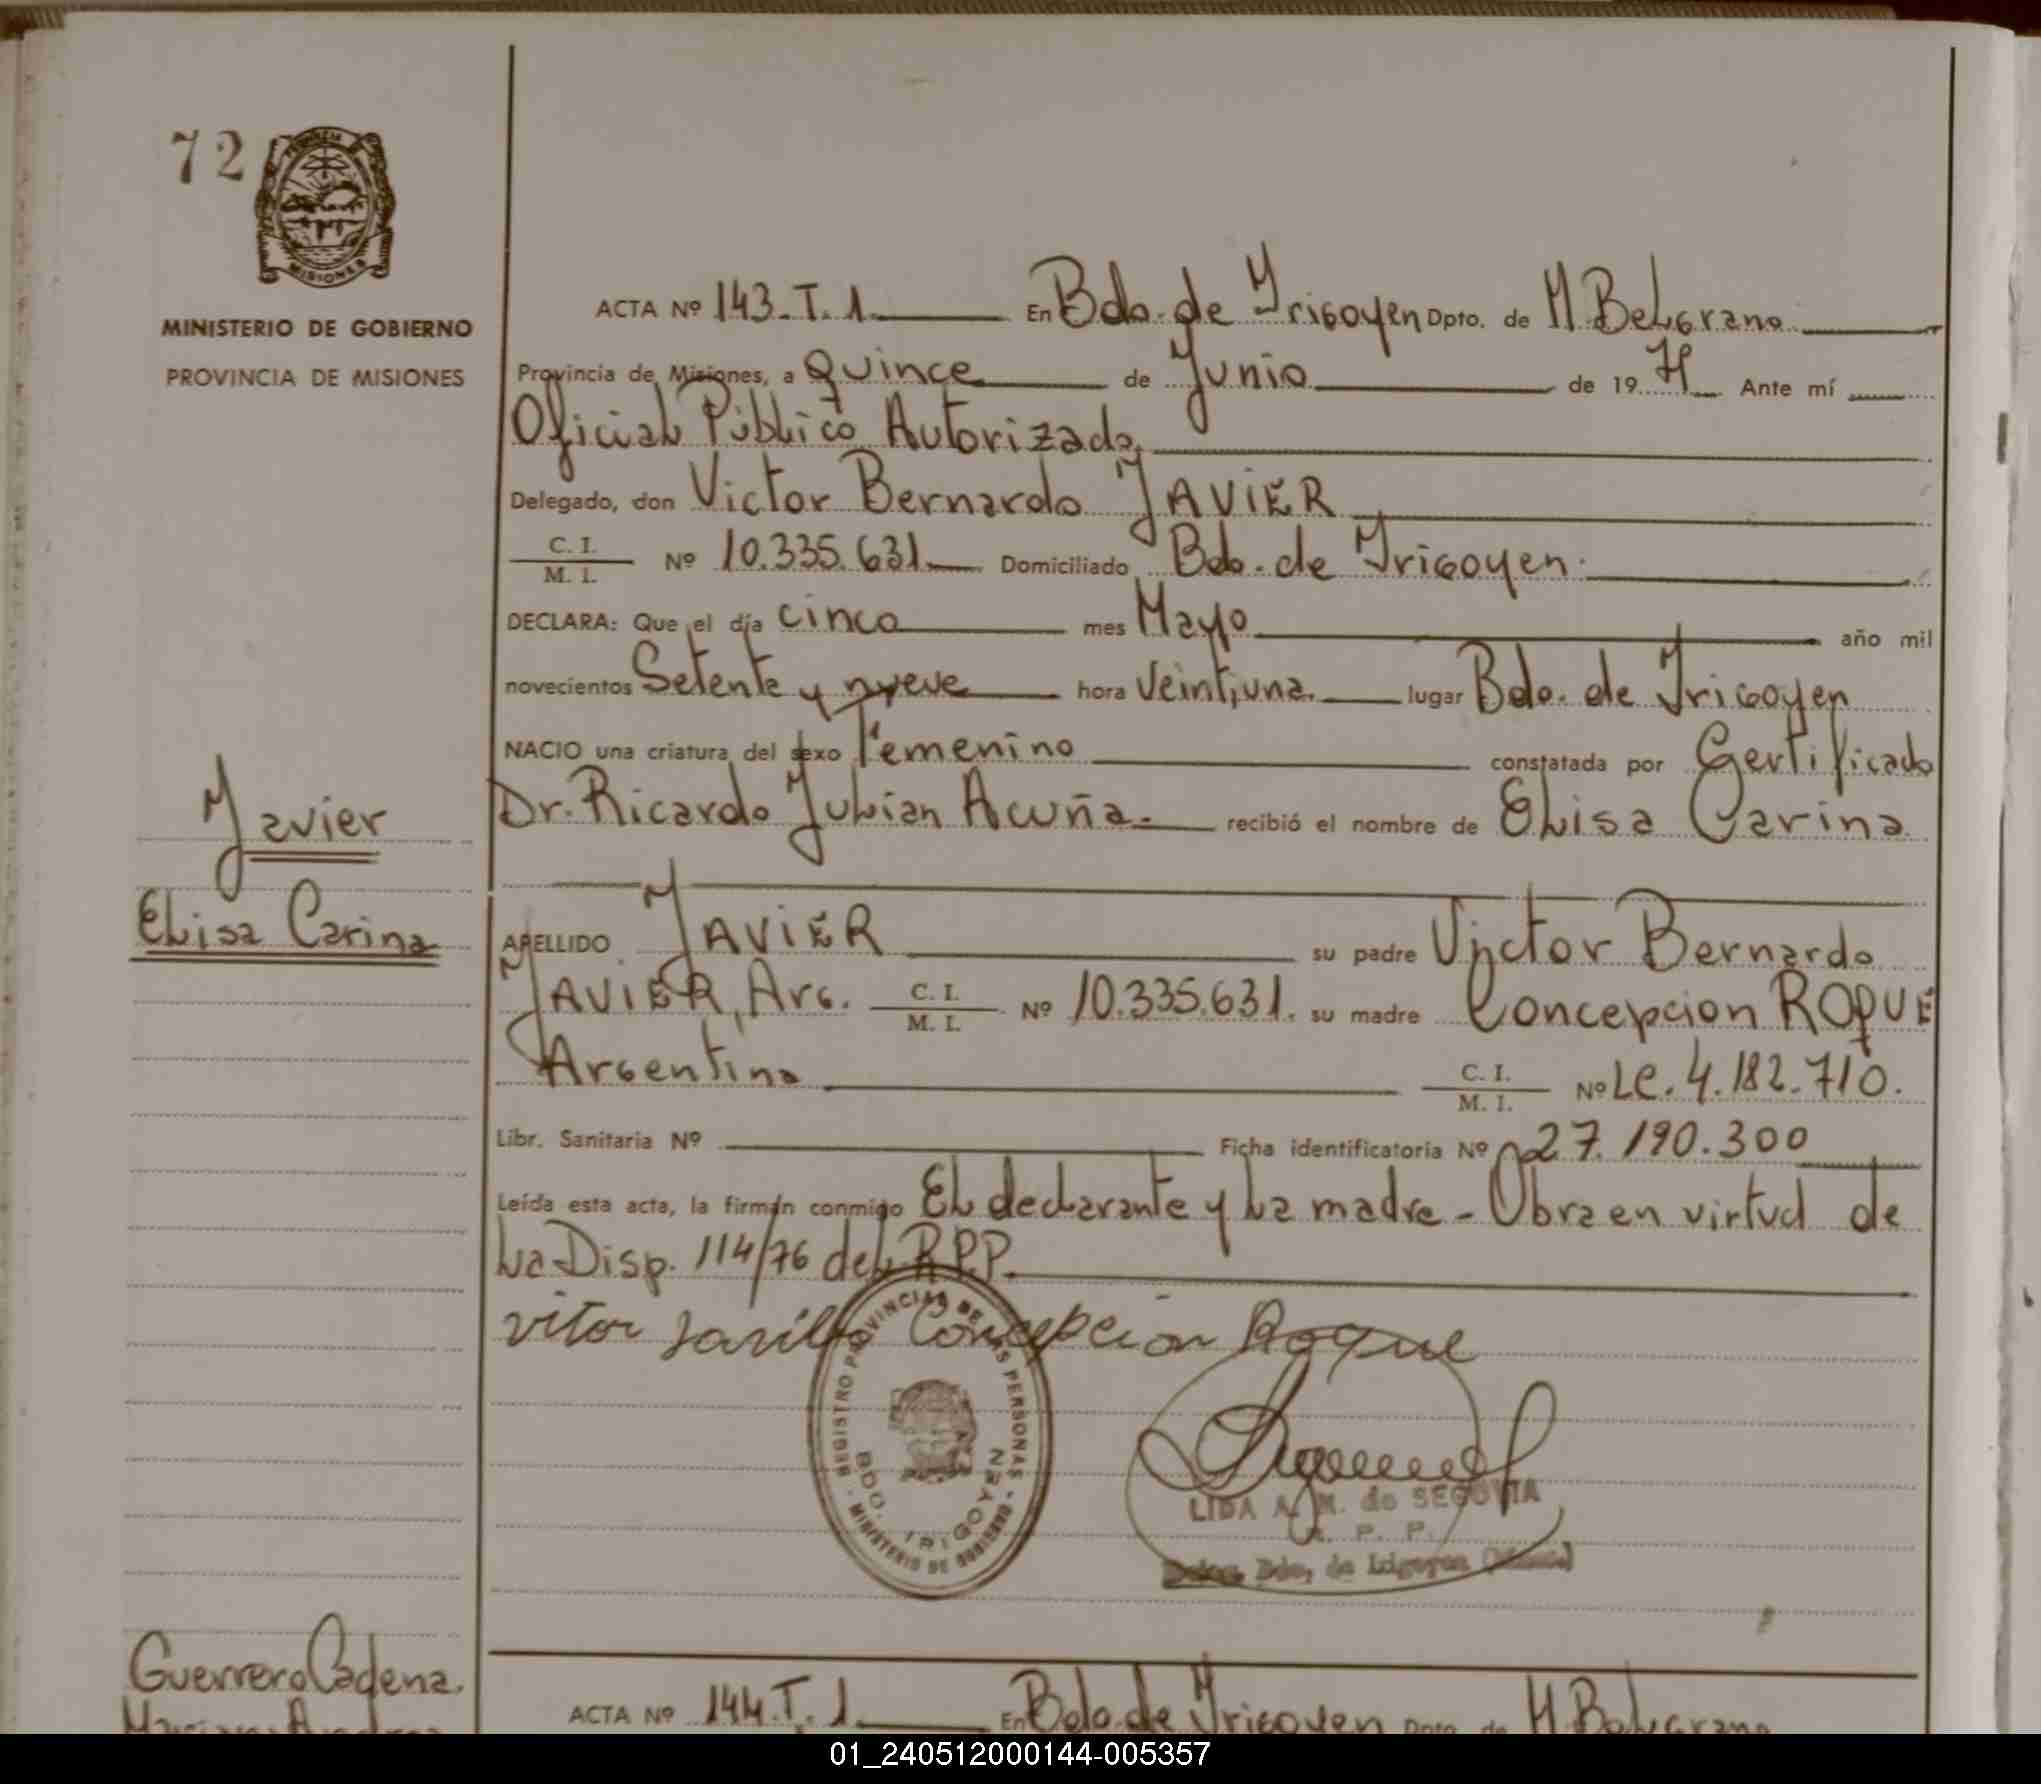 72
PROVINCIA
MISIONES
MINISTERIO DE GOBIERNO
PROVINCIA DE MISIONES
ACTA Nº 143.T.1. En Bdo. de Irigoyen Dpto. de M. Belgrano
Provincia de Misiones, a Quince de Junio de 19 79 Ante mí
Oficial Público Autorizado
Delegado, don Victor Bernardo JAVIER
C. I.
M. I. Nº 10.335.631 Domiciliado Bdo. de Irigoyen.
DECLARA: Que el día cinco mes Mayo año mil
novecientos Setenta y nueve hora Veintiuna. lugar Bdo. de Irigoyen
NACIO una criatura del sexo Femenino constatada por Certificado
Dr. Ricardo Julian Acuña. recibió el nombre de Elisa Carina
Javier
Elisa Carina
APELLIDO JAVIER su padre Victor Bernardo
JAVIER, Arg. C. I.
M. I. Nº 10.335.631. su madre Concepcion ROQUE
Argentina C. I.
M. I. Nº LC. 4.182.710.
Libr. Sanitaria Nº Ficha identificatoria Nº 27.190.300
Leída esta acta, la firman conmigo El declarante y la madre - Obra en virtud de
la Disp. 114/76 del R.P.P.
vitor Concepcion Roque
REGISTRO PROVINCIAS DE LAS PERSONAS
BDO. IRIGOYEN
MINISTERIO DE GOBIERNO
LIDA A. M. de SEGOVIA
R. P. P.
Bdo. de Irigoyen
Guerrero Cadena.
ACTA Nº 144.T.1. En Bdo. de Irigoyen Dpto. de M. Belgrano
01_240512000144-005357